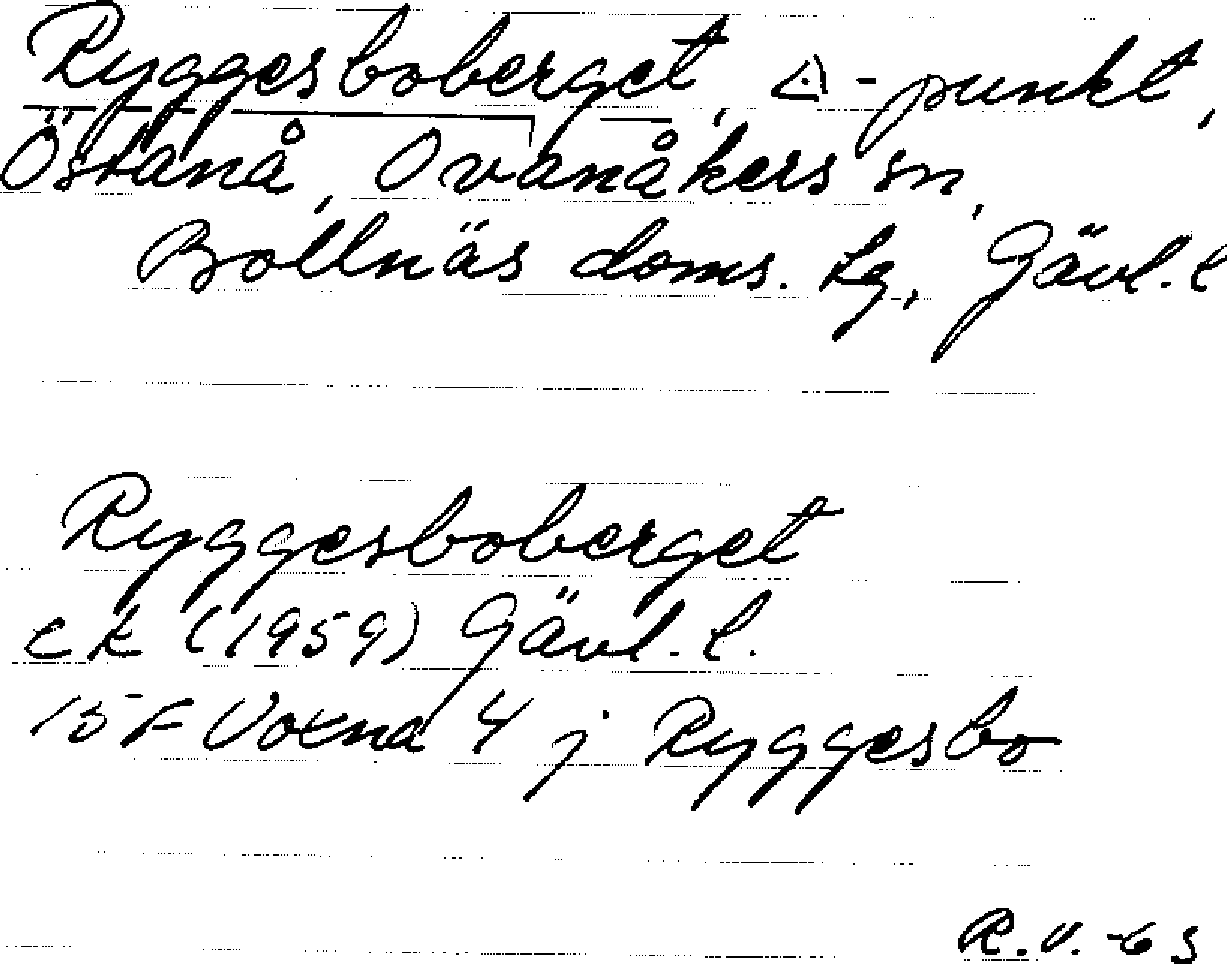 Ryggesboberget, △-punkt,
Östanå, Ovanåkers sn,
Bollnäs doms. lg, Gävl. l
Ryggesboberget
ek (1959) Gävl. l.
15F Voxna 4 j Ryggesbo
R.V. -63